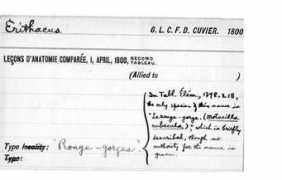 Erithacus G. L. C. F. D. CUVIER. 1800
LEÇONS D'ANATOMIE COMPARÉE, I, APRIL, 1800, SECOND TABLEAU.
(Allied to )
In Tabl. Élém., 1798, 218,
the only species of this name is
"Le rouge-gorge. (Motacilla
rubecula.)", which is briefly
described, though no
authority for the name is
given.
Type locality: "Rouge-gorges"
Type: